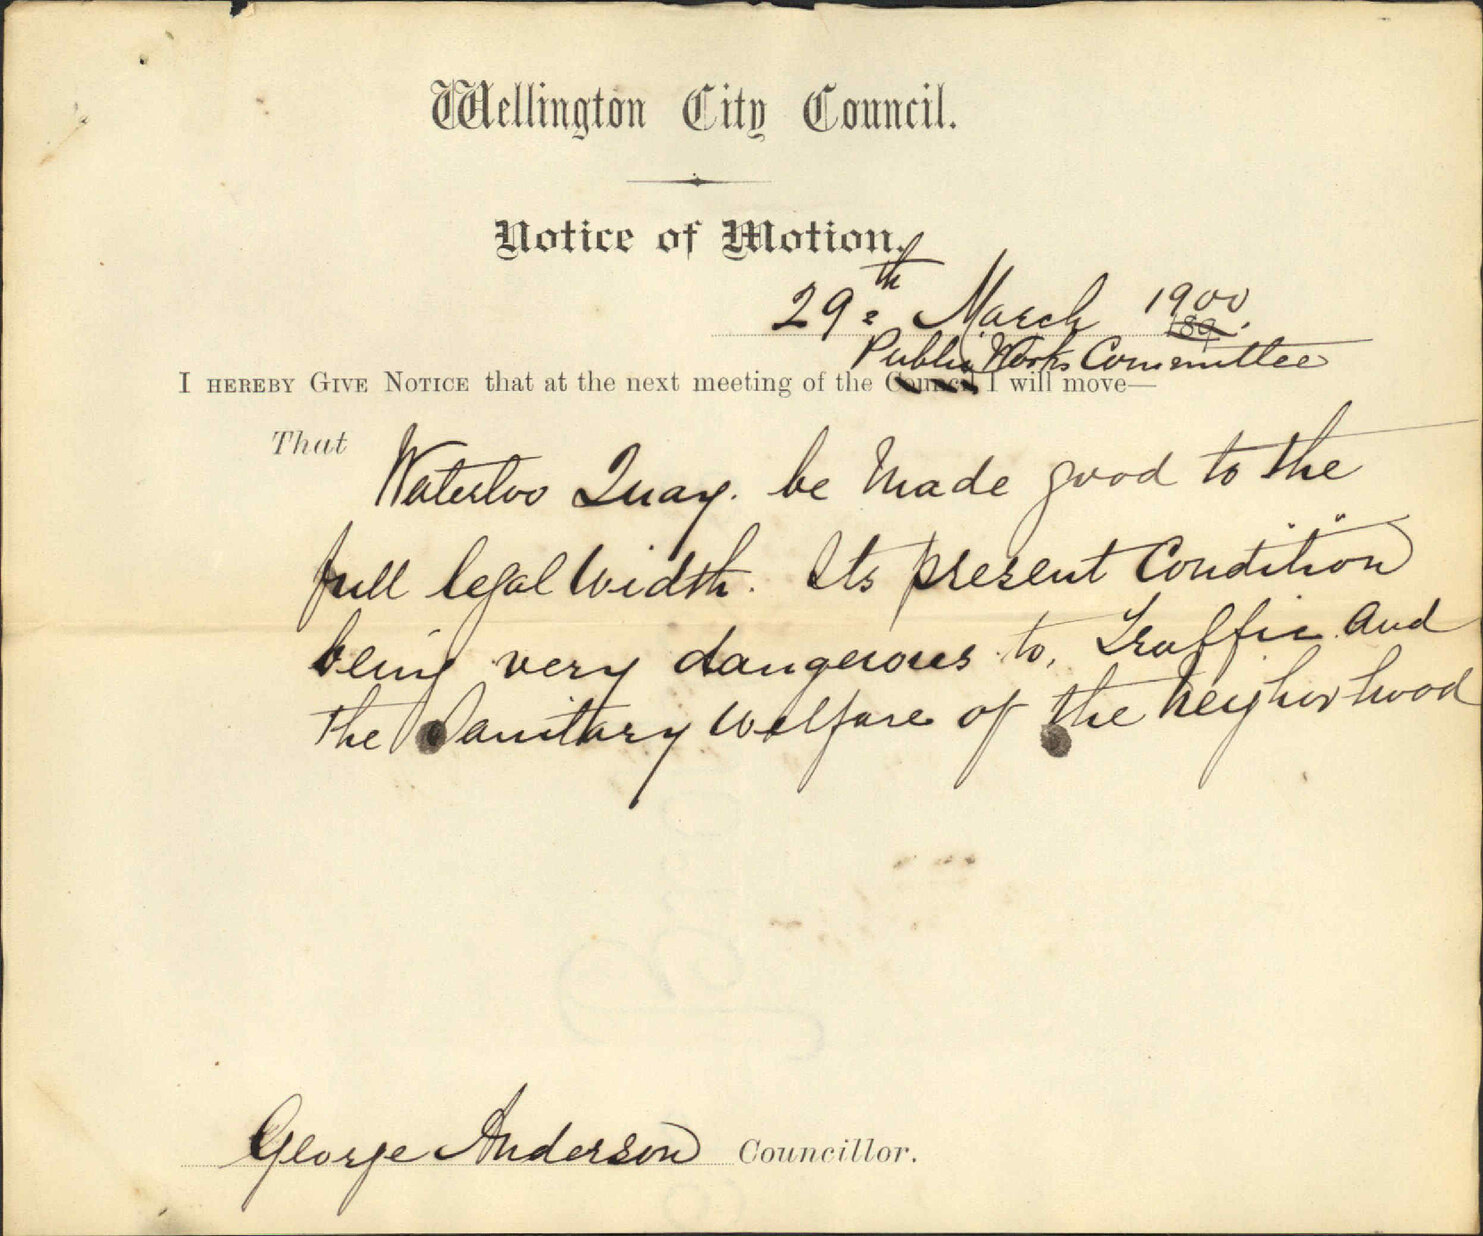 Wellington City Council.
Notice of Motion.
29th March 1900
189 .
Public Works Committee
I HEREBY GIVE NOTICE that at the next meeting of the Council I will move—
That Waterloo Quay. be Made good to the
full legal Width. Its present Condition
being very dangerous to, Traffic and
the Sanitary Welfare of the Neighborhood
George Anderson Councillor.